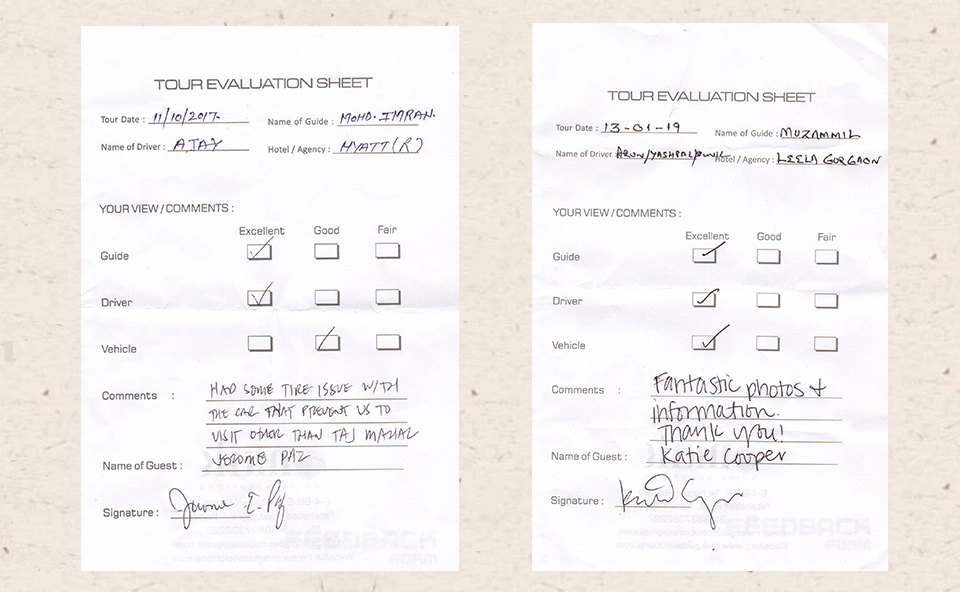 TOUR EVALUATION SHEET
Tour Date : 11/10/2017. Name of Guide : MOHD. IMRAN.
Name of Driver : ATAY Hotel / Agency : HYATT (R)
YOUR VIEW / COMMENTS :
Excellent Good Fair
Guide
Driver
Vehicle
Comments : HAD SOME TIRE ISSUE WITH
THE CAR THAT PREVENT US TO
VISIT OTHER THAN TAJ MAHAL
Name of Guest : JEROME PAZ
Signature : Jerome E. Paz
FEEDBACK
FORM
TOUR EVALUATION SHEET
Tour Date : 13-01-19 Name of Guide : MUZAMMIL
Name of Driver ARUN/YASHPAL/ Hotel / Agency : LEELA GURGAON
YOUR VIEW / COMMENTS :
Excellent Good Fair
Guide
Driver
Vehicle
Comments : Fantastic photos &
information.
Thank you!
Name of Guest : Katie Cooper
Signature :
FEEDBACK
FORM